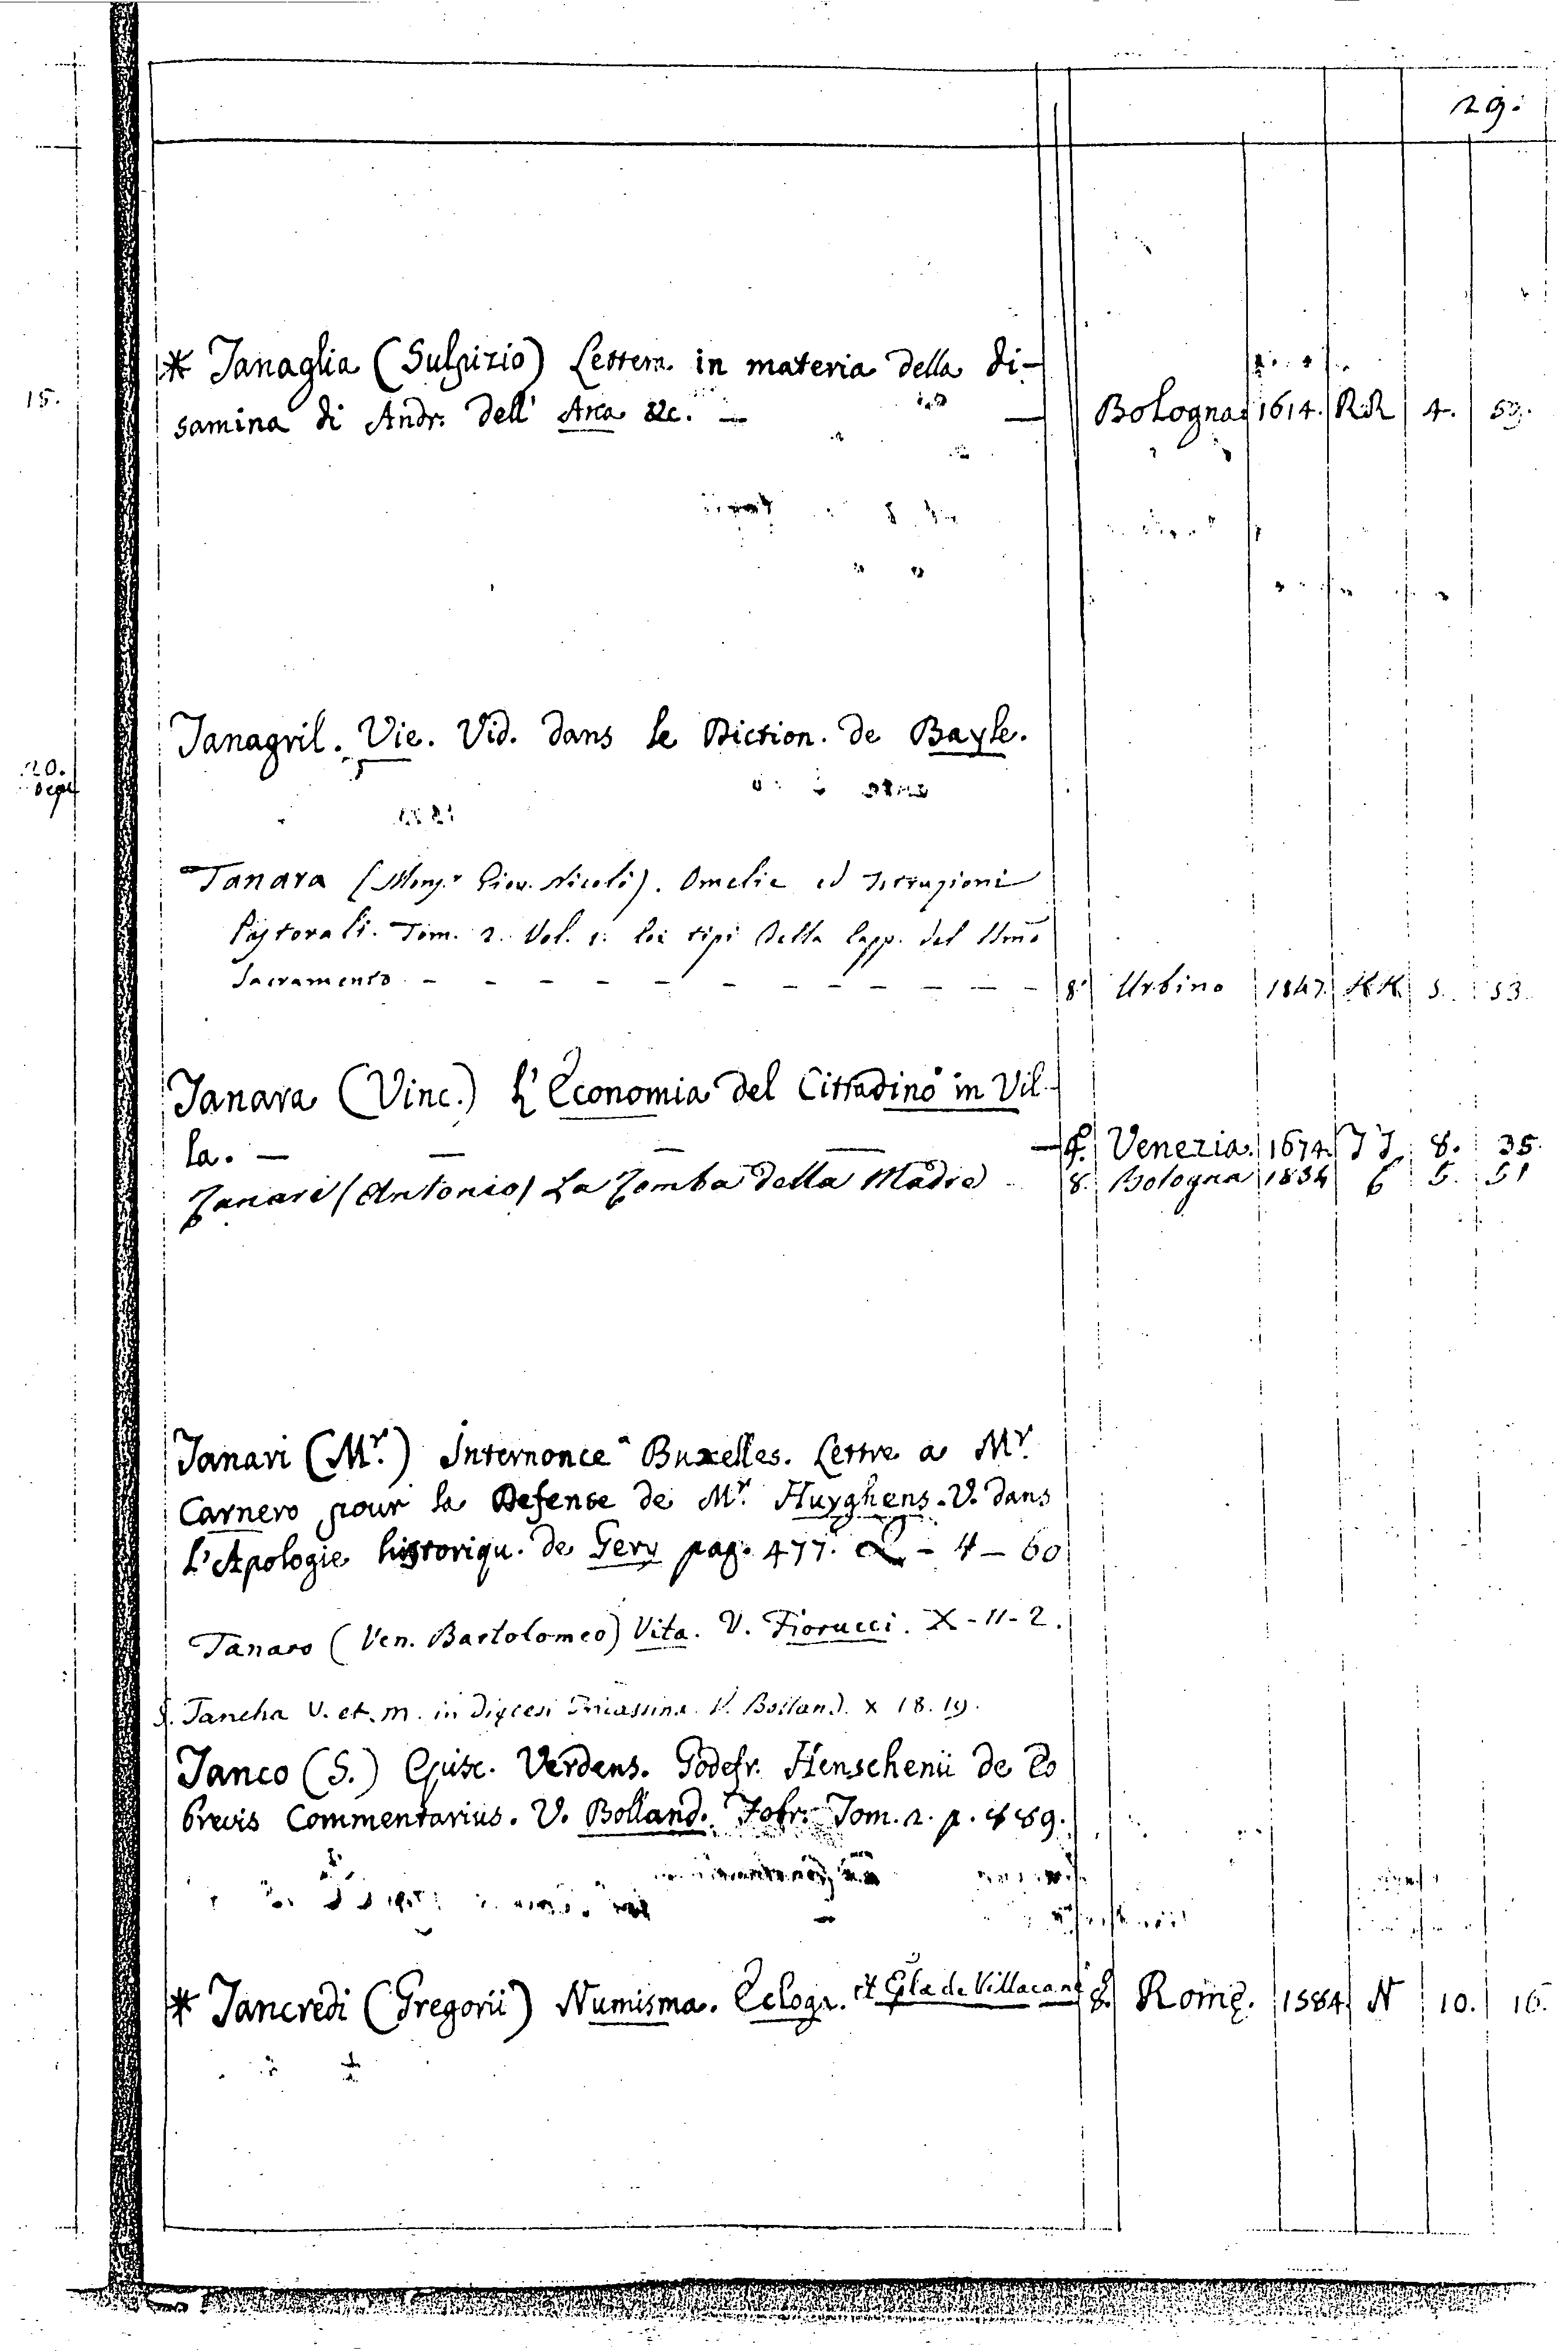 29.
15.
* Tanaglia (Sulpizio) Lettera in materia della di-
samina di Andr. dell' Arca &c. — — Bologna 1614. RR 4. 53.
Tanaqril. Vie. Vid. dans le Diction. de Bayle.
20.
Tanara (Monsr. Giov. Nicolò). Omelie ed Istruzioni
Pastorali. Tom. 2. Vol. 1. coi tipi della Capp. del SSmo
Sacramento - - - - - - - - - - - 8. Urbino 1847. KK. 5. 53.
Tanara (Vinc.) L'Economia del Cittadino in Vil-
la. — — — — — 4. Venezia. 1674. JJ. 8. 35.
Tanari (Antonio) La Tomba della Madre 8. Bologna 1834 6 5. 51
Tanari (Mr.) Internonce a Buxelles. Lettre a Mr.
Carnero pour la Defense de Mr. Huyghens. V. dans
L'Apologie historiqu. de Gery pag. 477. Q - 4 - 60
Tanaro (Ven. Bartolomeo) Vita. V. Fiorucci. X - 11 - 2.
S. Tancha V. et. m. in V. Bolland. X 18. 19.
Tanco (S.) Episc. Verdens. Godefr. Henschenii de Eo
brevis Commentarius. V. Bolland. Febr. Tom. 2. p. 889.
* Tancredi (Gregorii) Numisma. Eclogr. et Egla de Villacane 8. Romę. 1584. N 10. 16.